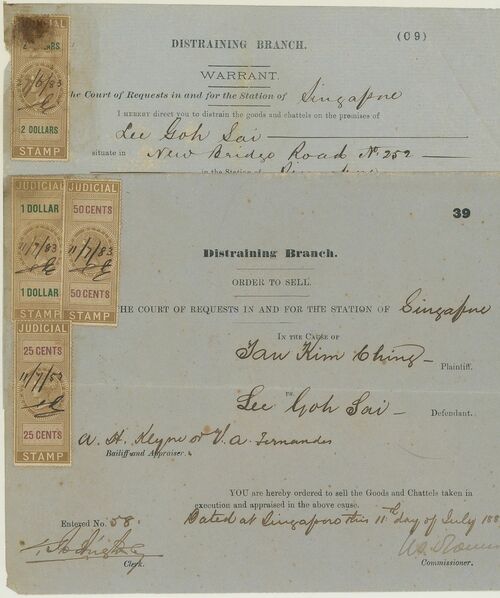 JUDICIAL
2 DOLLARS
7/6/83
2 DOLLARS
STAMP
(09)
DISTRAINING BRANCH.
WARRANT.
he Court of Requests in and for the Station of Singapore
I HEREBY direct you to distrain the goods and chattels on the premises of
Lee Goh Sai
situate in New Bridge Road No. 252
in the Station of Singapore
JUDICIAL
1 DOLLAR
11/7/83
1 DOLLAR
STAMP
JUDICIAL
50 CENTS
11/7/83
50 CENTS
STAMP
JUDICIAL
25 CENTS
11/7/83
25 CENTS
STAMP
39
Distraining Branch.
ORDER TO SELL.
THE COURT OF REQUESTS IN AND FOR THE STATION OF Singapore
IN THE CAUSE OF
Tan Kim Ching
Plaintiff.
vs.
Lee Goh Sai
Defendant.
A. H. Keyne or V. A. Fernandes
Bailiff and Appraiser.
YOU are hereby ordered to sell the Goods and Chattels taken in
execution and appraised in the above cause.
Entered No. 58.
Dated at Singapore this 11th day of July 188
Clerk.
Commissioner.